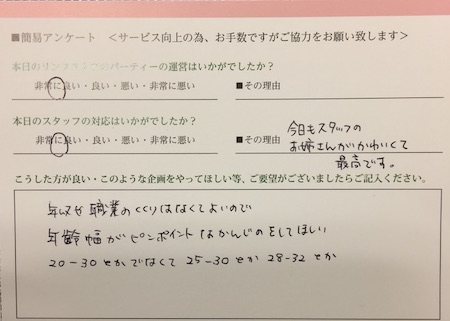 ■簡易アンケート ＜サービス向上の為、お手数ですがご協力をお願い致します＞
本日の のパーティーの運営はいかがでしたか？
非常に良い・良い・悪い・非常に悪い ■その理由
本日のスタッフの対応はいかがでしたか？
非常に良い・良い・悪い・非常に悪い ■その理由
今日もスタッフの
お姉さんがかわいくて
最高です。
こうした方が良い・このような企画をやってほしい等、ご要望がございましたらご記入ください。
年収や職業のくくりはなくてよいので
年齢幅がピンポイントなかんじのをしてほしい
20-30とかでなくて 25-30とか 28-32とか